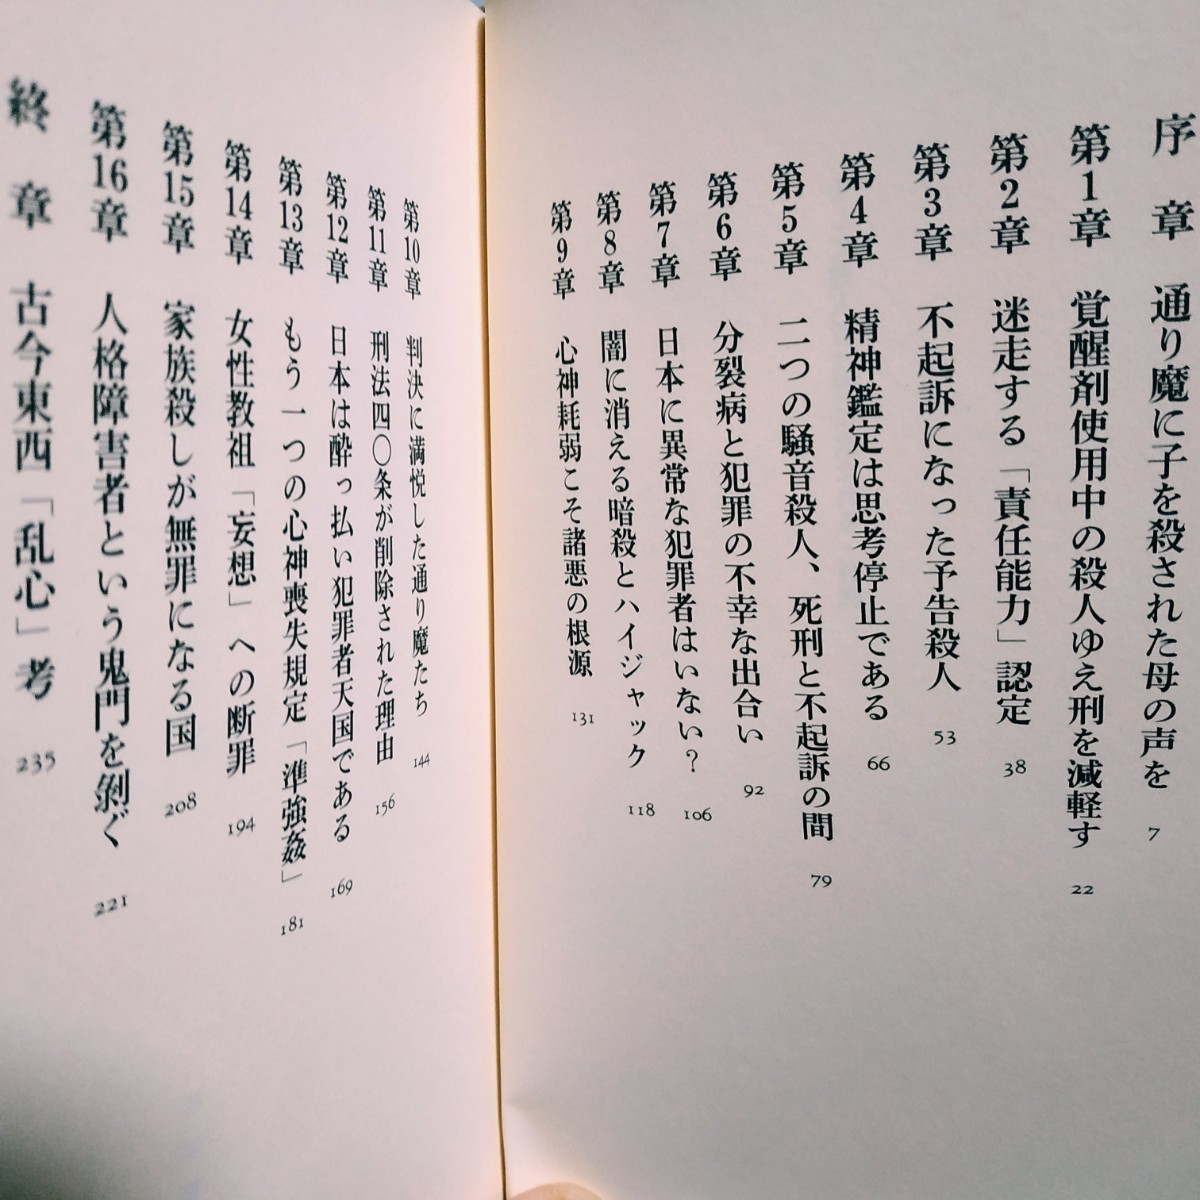 序章 通り魔に子を殺された母の声を 7
第1章 覚醒剤使用中の殺人ゆえ刑を減軽す 22
第2章 迷走する「責任能力」認定 38
第3章 不起訴になった予告殺人 53
第4章 精神鑑定は思考停止である 66
第5章 二つの騒音殺人、死刑と不起訴の間 79
第6章 分裂病と犯罪の不幸な出合い 92
第7章 日本に異常な犯罪者はいない? 106
第8章 闇に消える暗殺とハイジャック 118
第9章 心神耗弱こそ諸悪の根源 131
第10章 判決に満悦した通り魔たち 144
第11章 刑法四〇条が削除された理由 156
第12章 日本は酔っ払い犯罪者天国である 169
第13章 もう一つの心神喪失規定「準強姦」 181
第14章 女性教祖「妄想」への断罪 194
第15章 家族殺しが無罪になる国 208
第16章 人格障害者という鬼門を剝ぐ 221
終章 古今東西「乱心」考 235